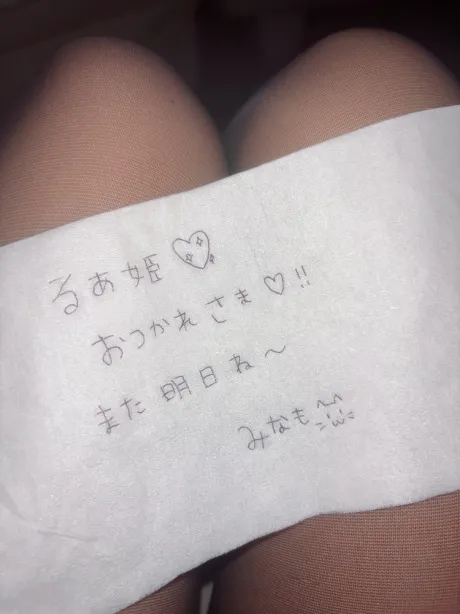 るあ姫♡
おつかれさま♡!!
また明日ね～
みなも